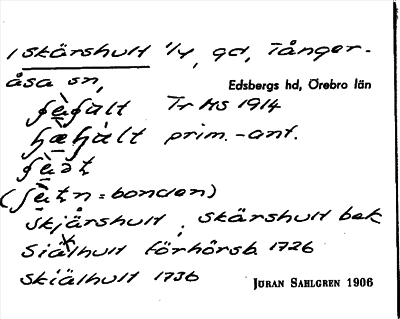 1 Skärshult 1/4, gd, Tånger-
åsa sn,
Edsbergs hd, Örebro län
Tr HS 1914
prim.-ant.
(= bonden)
Skjårshult, Skärshult bek
Siälhult förhörsb. 1726
Skiälhult 1736
JÖRAN SAHLGREN 1906